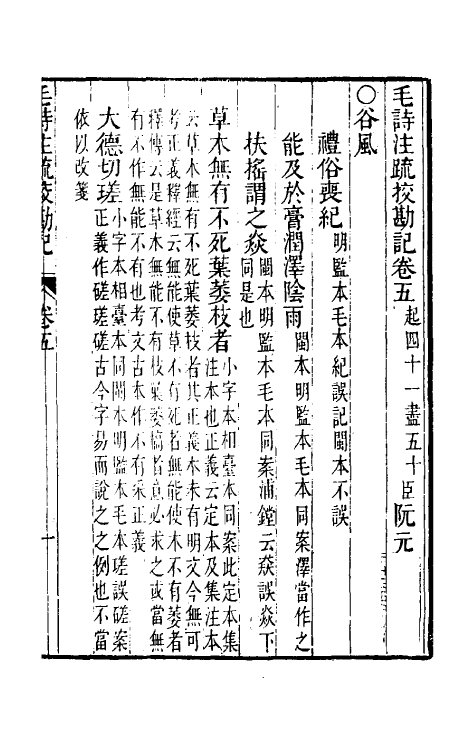 毛詩注疏挍勘記卷五 起四十一盡五十 臣阮元
○谷風
禮俗喪紀 明監本毛本紀誤記閩本不誤
能及於膏潤澤陰雨 閩本明監本毛本同案澤當作之
扶搖謂之焱 閩本明監本毛本同案浦鏜云猋誤焱下
同是也
草木無有不死葉萎枝者 小字本相臺本同案此定本集
注本也正義云定本及集注本
云草木無有不死葉萎枝者其正義本未有明文今無可
考正義釋經云無能使草不有死者無能使木不有萎者
釋傳云是草木無能不有枝葉萎槁者意必求之或當無
有不作無能不有也考文古本作不有采正義
大德切瑳 小字本相臺本同閩本明監本毛本瑳誤磋案
正義作磋瑳磋古今字易而說之之例也不當
依以改箋
毛詩注疏挍勘記 卷五 一